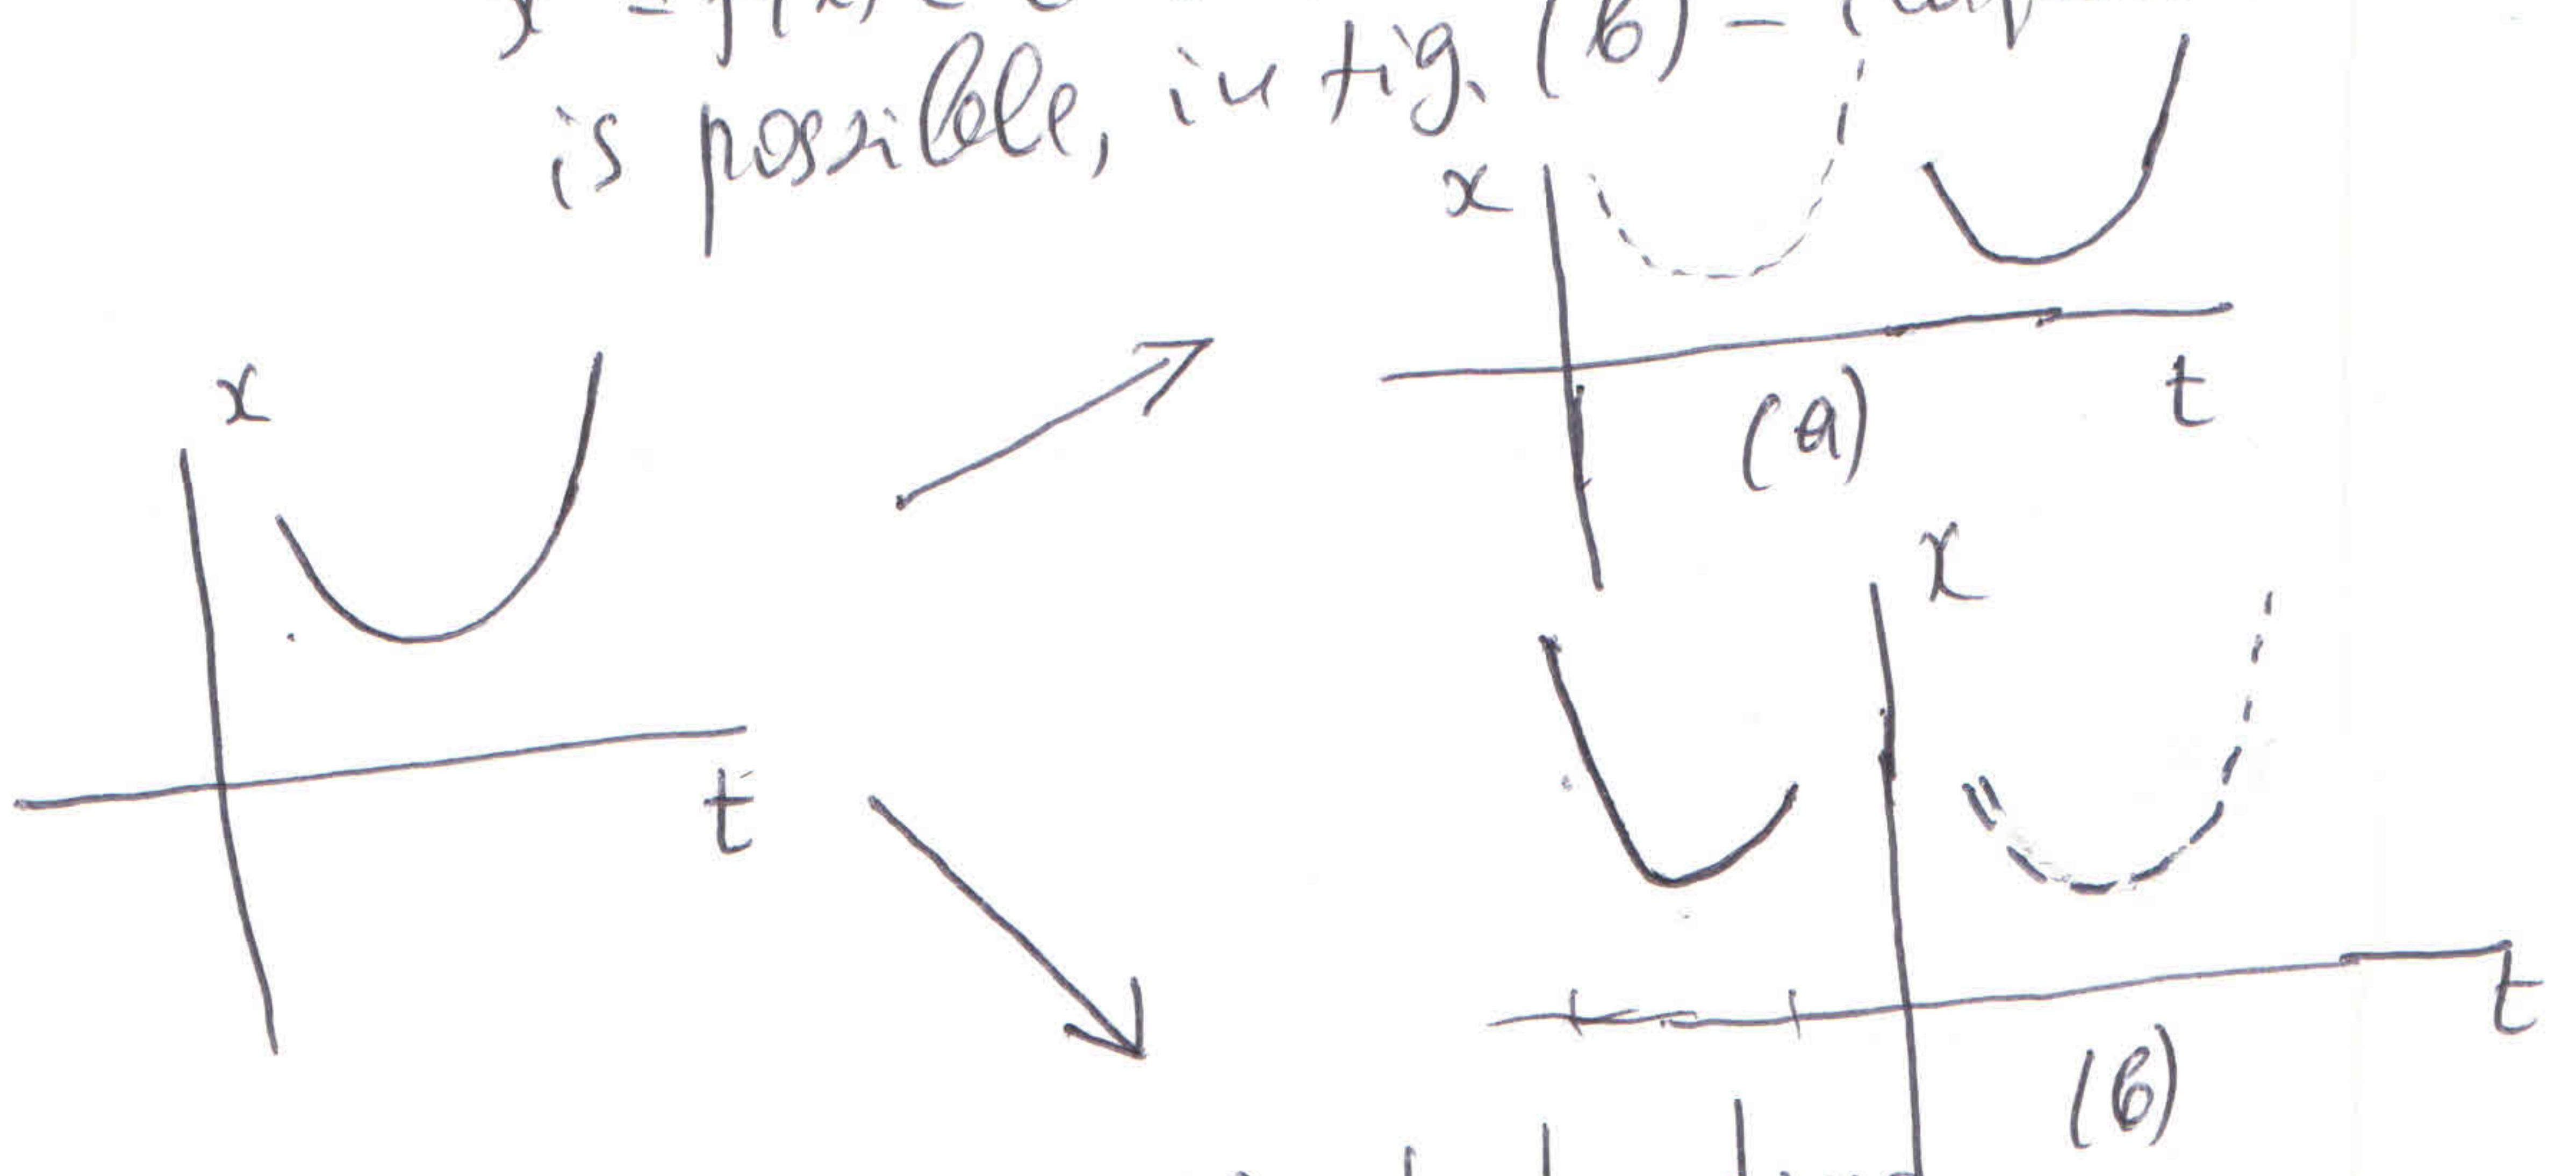 is possible, in fig. (b) –
x
x
t
(a)
t
x
t
(b)